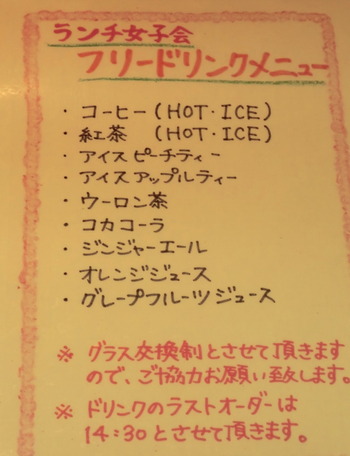 ランチ女子会
フリードリンクメニュー
・コーヒー(HOT・ICE)
・紅茶 (HOT・ICE)
・アイスピーチティー
・アイスアップルティー
・ウーロン茶
・コカコーラ
・ジンジャーエール
・オレンジジュース
・グレープフルーツジュース
※ グラス交換制とさせて頂きます
ので、ご協力お願い致します。
※ ドリンクのラストオーダーは
14:30とさせて頂きます。